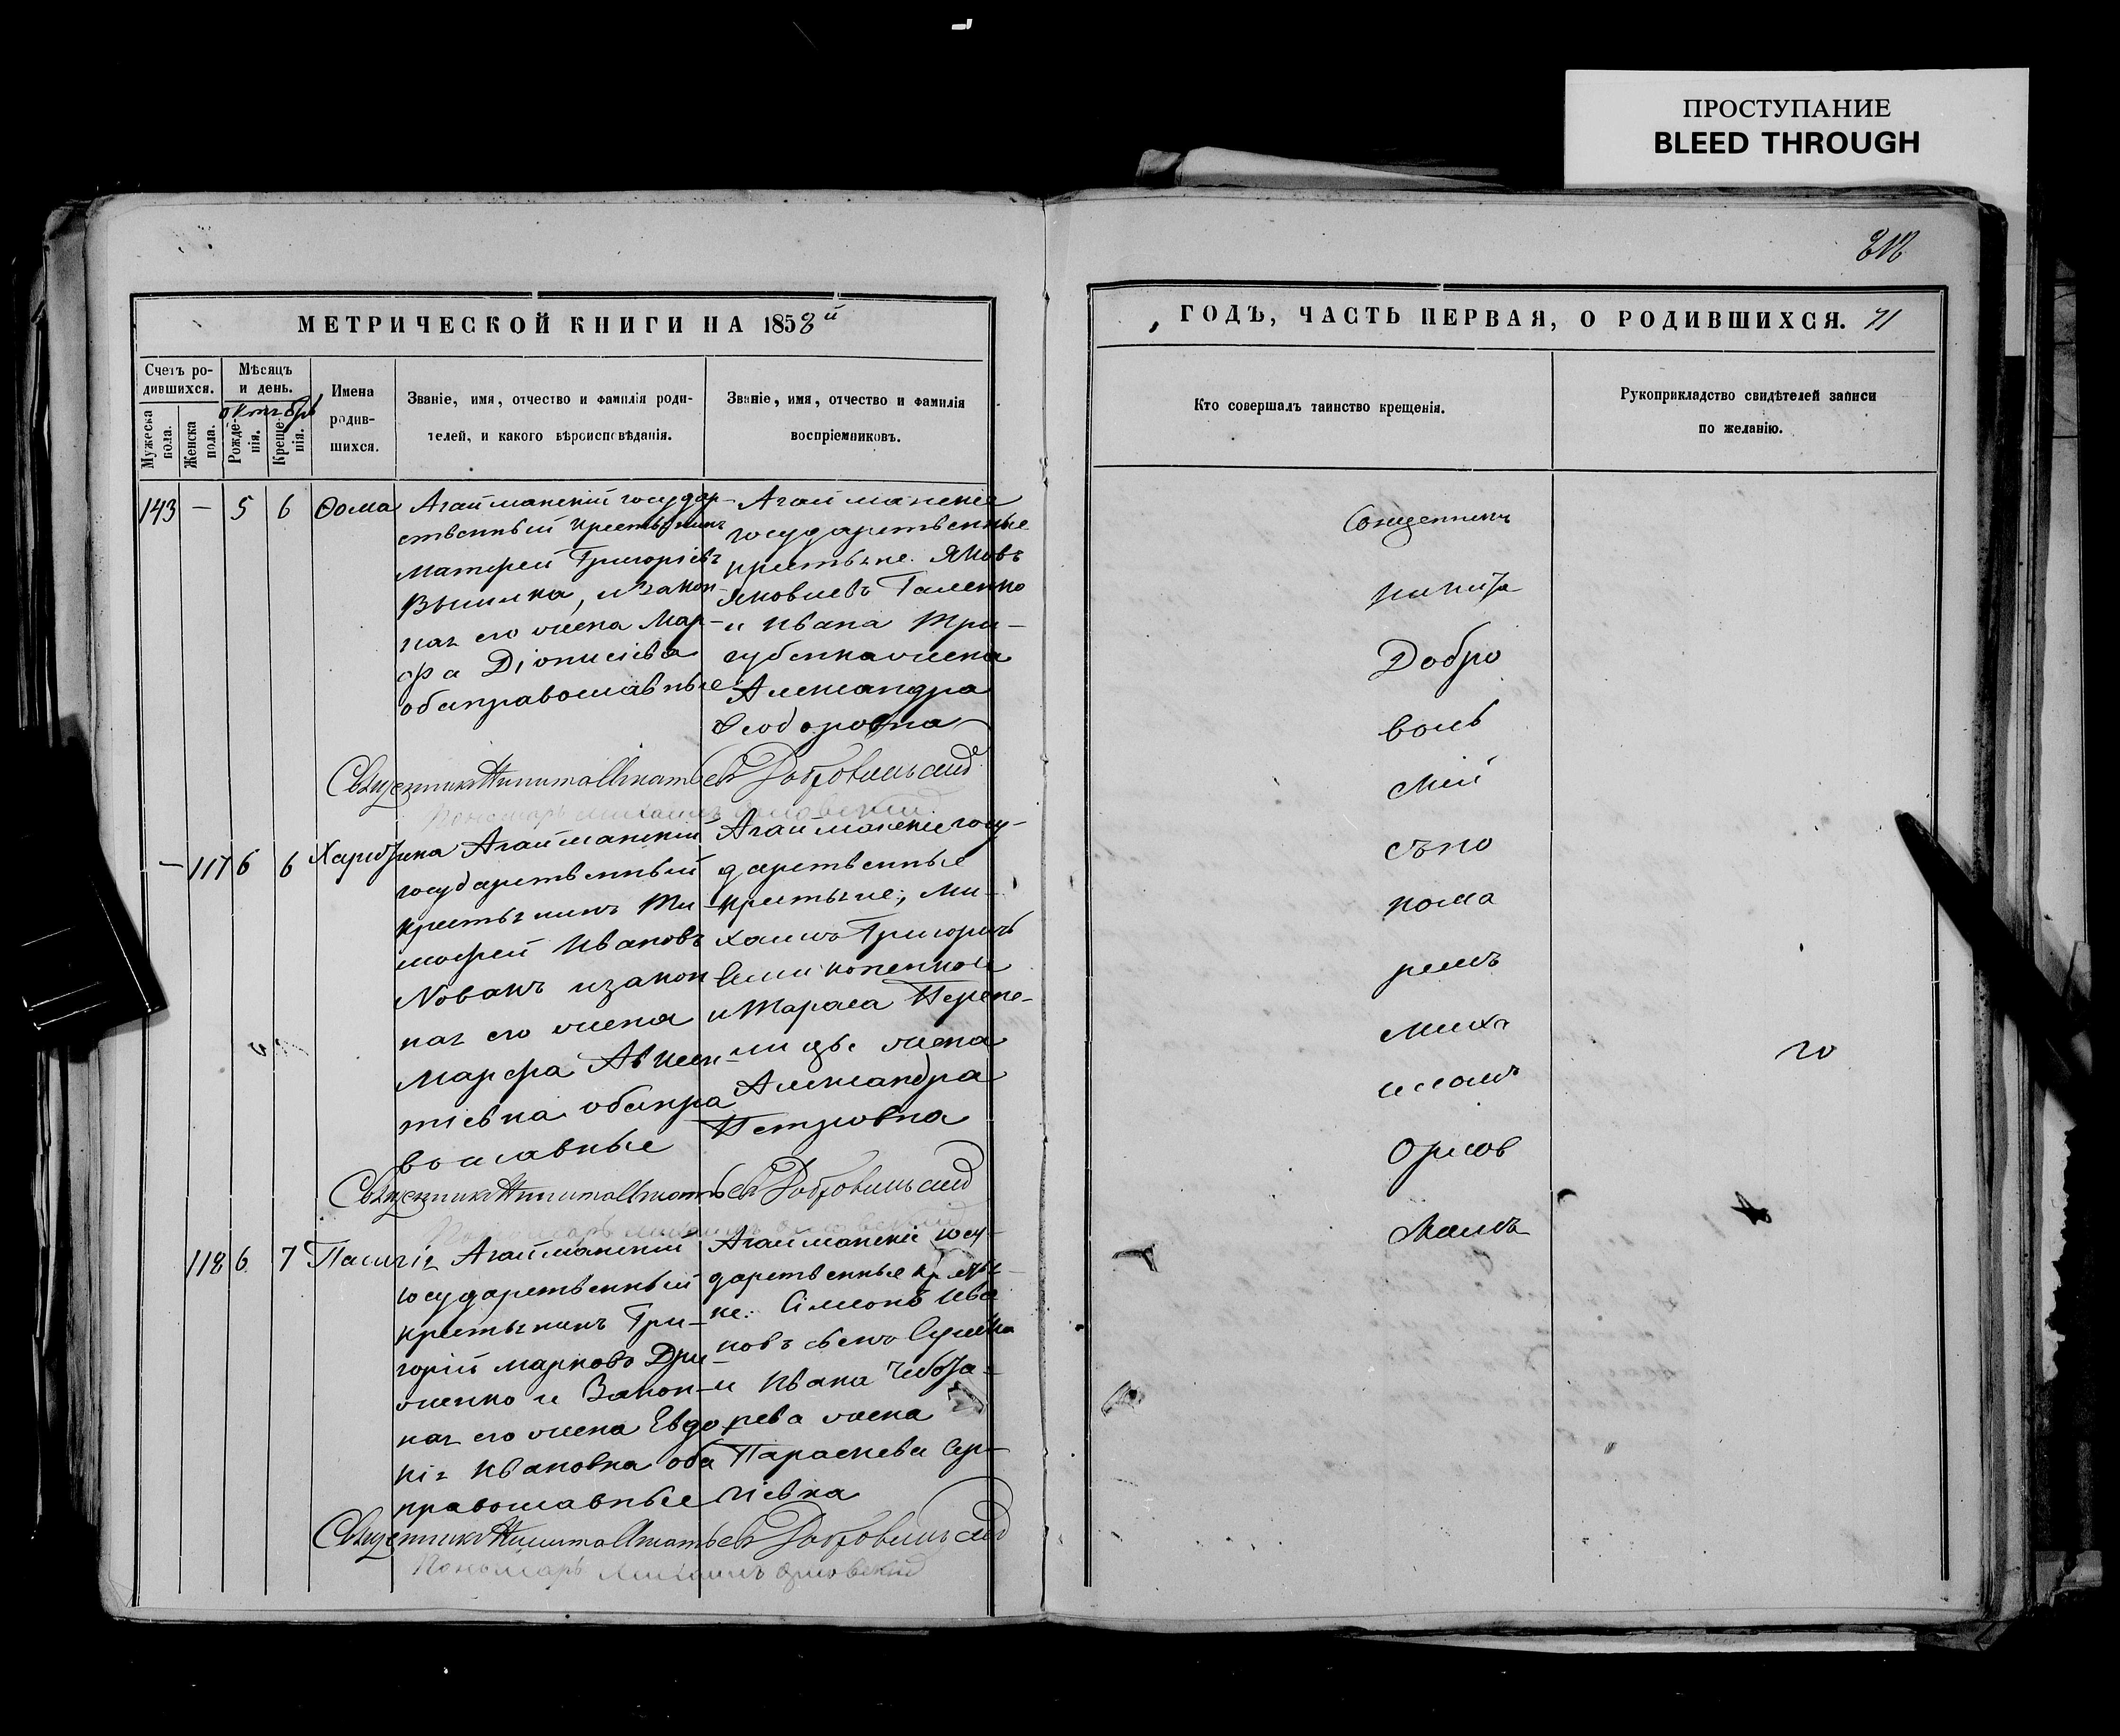 ПРОСТУПАНИЕ
BLEED THROUGH
МЕТРИЧЕСКОЙ КНИГИ НА 1858й
ГОДЪ, ЧАСТЬ ПЕРВАЯ, О РОДИВШИХСЯ. 71
Счетъ ро-
дившихся.
Мужеска
пола.
Женска
пола.
Мѣсяцъ
и день.
октябрь
Рожде-
нія.
Креще-
нія.
Имена
родив-
шихся.
Званіе, имя, отчество и фамилія роди-
телей, и какого вѣроисповѣданія.
Званіе, имя, отчество и фамилія
воспріемниковъ.
Кто совершалъ таинство крещенія.
Рукоприкладство свидѣтелей записи
по желанію.
143 — 5 6 Ѳома
Агайманскій государ-
ственный крестьянинъ
Матфей Григоріевъ
и закон-
ная его жена Мар-
фа Діонисіева
оба православные
Агайманскіе
государственные
крестьяне: Яковъ
Яковлевъ Галенко
и Ивана Три-
губенка жена
Александра
Феодоровна
Священникъ Никита Добровольскій
Пономарь Михаилъ Орловский
— 117 6 6 Харитина
Агайманскій
государственный
крестьянинъ Ти-
мофей Ивановъ
Новакъ и закон
ная его жена
Марфа Авксен-
тіевна оба пра
вославные
Агайманскіе госу-
дарственные
крестьяне; Ми-
хаилъ Григорьевъ
и Тараса Перепе-
лицы жена
Александра
Петровна
Священникъ Никита Добровольскій
Пономарь Михаилъ Орловский
118 6 7 Пелагія
Агайманскій
государственный
крестьянинъ Гри-
горій Марковъ
и Закон-
ная его жена Евдо
кія Ивановна оба
православные
Агайманскіе госу-
дарственные крестья-
не: Симеонъ Ива
новъ сынъ
и Ивана Чебота-
рева жена
Параскева Сер-
гіевна
Священникъ Никита Добровольскій
Пономарь Михаилъ Орловский
Священникъ
Никита
Добро
воль
скій
съ по
нома
ремъ
Миха
иломъ
Орлов
скимъ